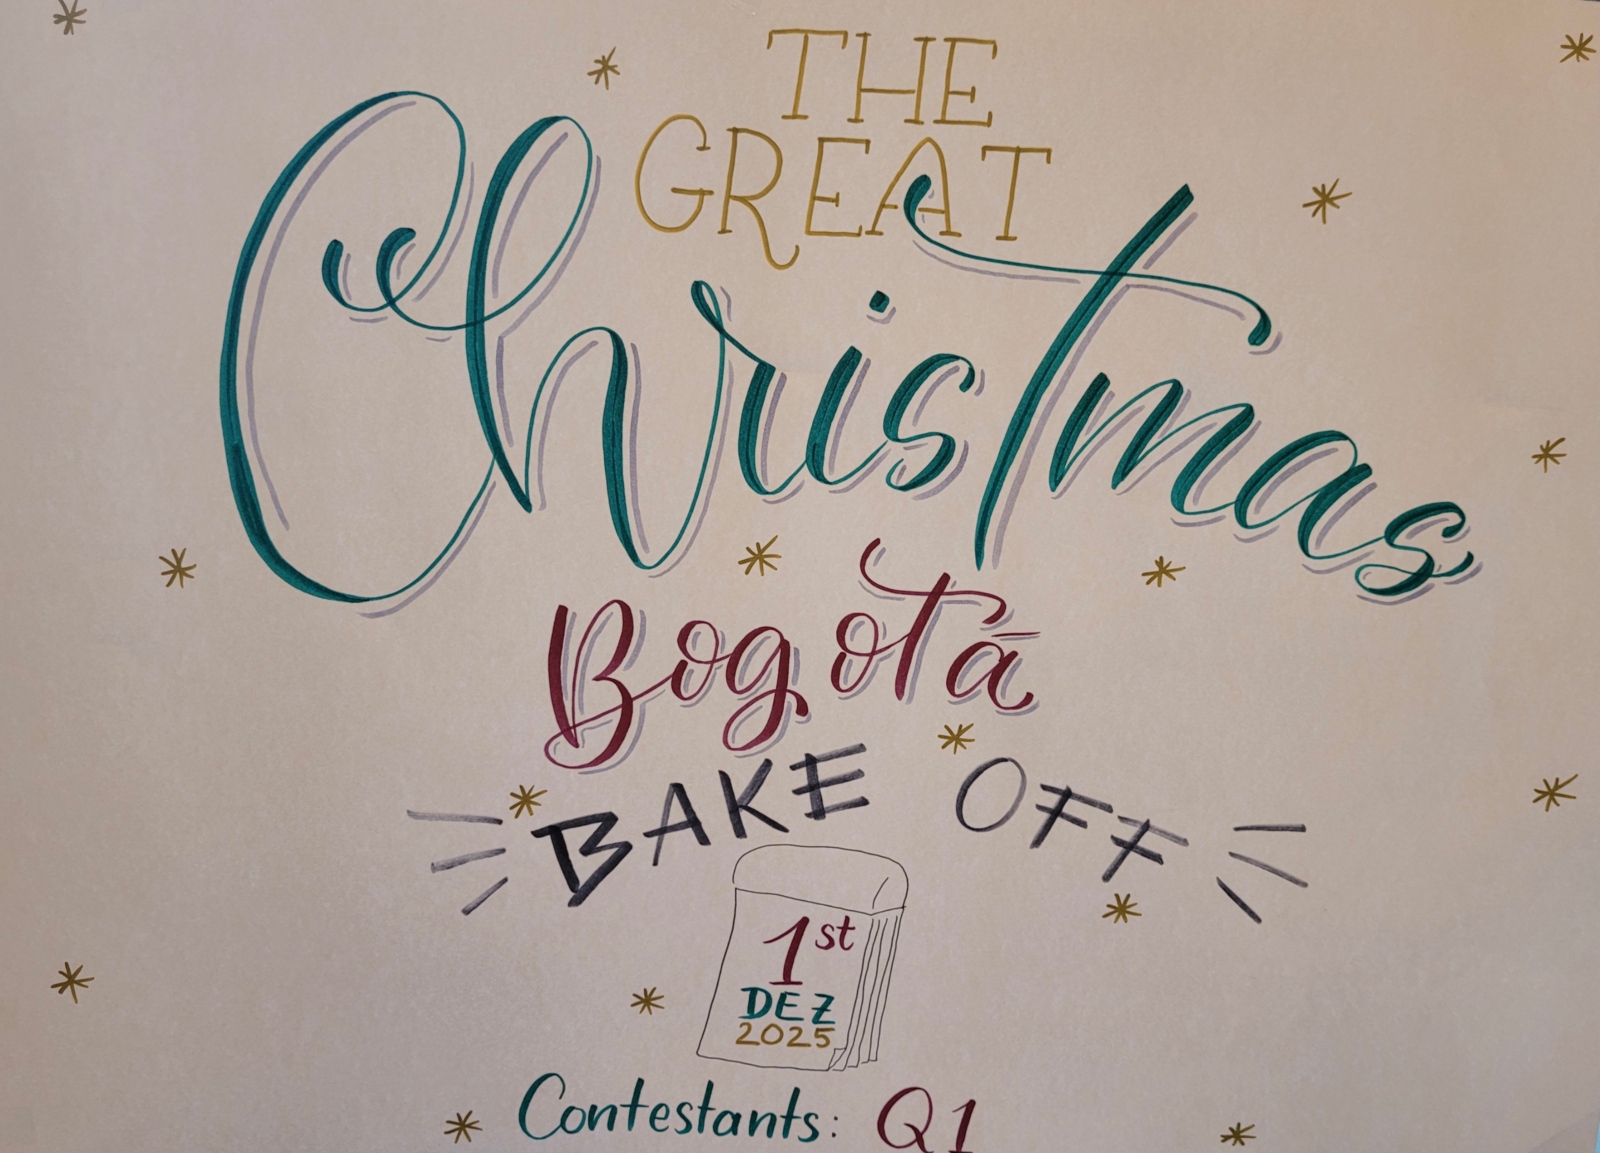 THE
GREAT
Christmas
Bogotá
BAKE OFF
1st
DEZ
2025
Contestants: Q1